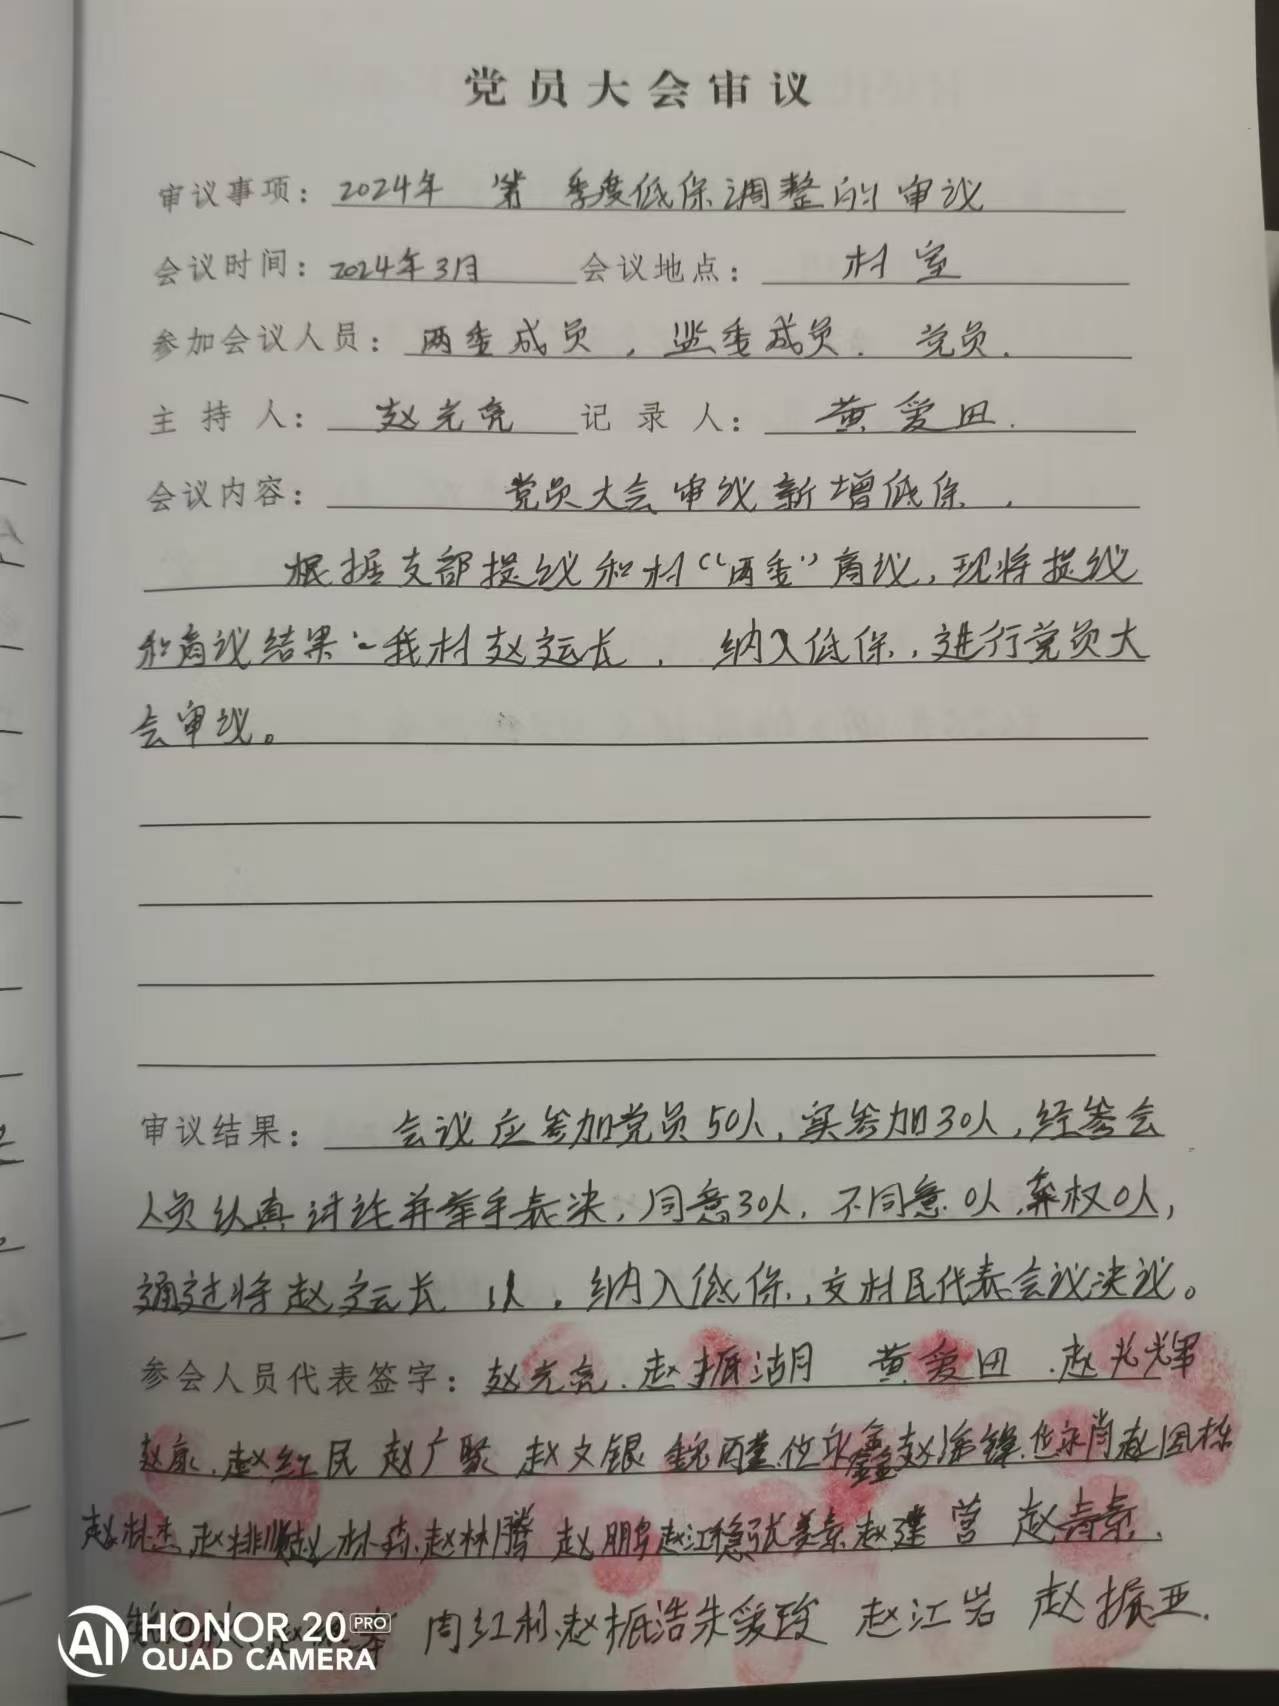 党员大会审议
审议事项：2024年 第 季度低保调整的审议
会议时间：2024年3月 会议地点：村室
参加会议人员：两委成员，监委成员．党员．
主持人：赵光亮 记录人：黄爱田．
会议内容：党员大会审议新增低保．
根据支部提议和村“两委”商议，现将提议
和商议结果：我村赵运长．纳入低保，进行党员大
会审议。
审议结果：会议应参加党员50人，实参加30人，经参会
人员认真讨论并举手表决，同意30人，不同意0人，弃权0人，
通过将赵运长 以．纳入低保，交村民代表会议决议。
参会人员代表签字：赵光亮．赵振湖 黄爱田．赵光辉
赵康．赵红民 赵广聚 赵文银 赵国栋
赵林杰 赵林森．赵林腾 赵鹏 赵江稳 张美景 赵建营 赵青景．
周红利 赵振浩 朱爱玲 赵江岩 赵振亚．
AI HONOR 20 PRO
QUAD CAMERA